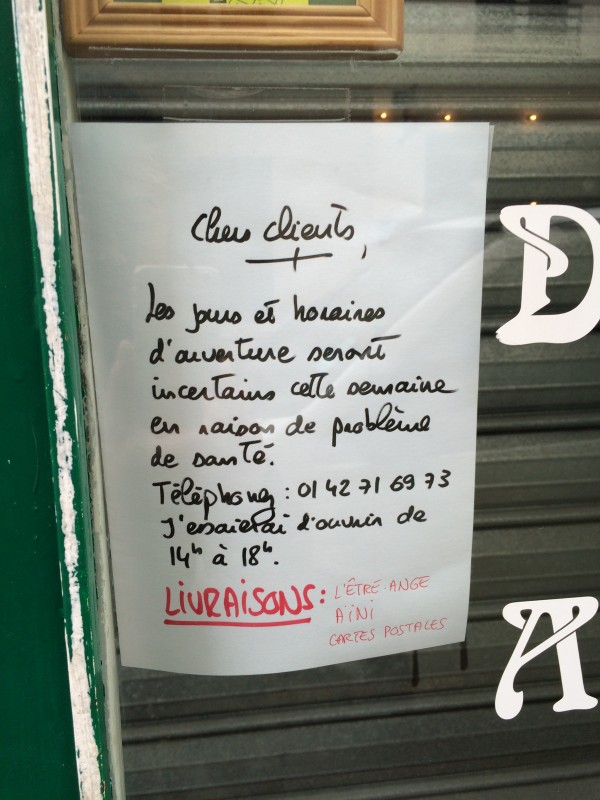 Chers clients,
Les jours et horaires
d'ouverture seront
incertains cette semaine
en raison de problème
de santé.
Téléphonez : 01 42 71 69 73
J'essaierai d'ouvrir de
14h à 18h.
LIVRAISONS : L'ÊTRE-ANGE
AÏNI
CARTES POSTALES
D
A